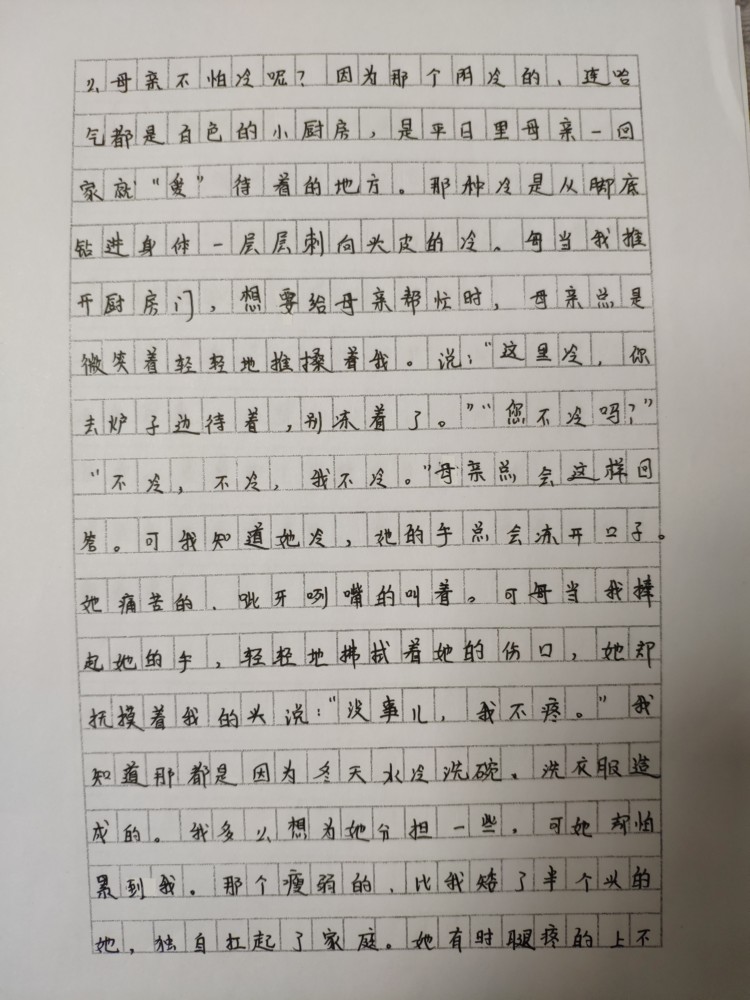 么母亲不怕冷呢？因为那个阴冷的、连哈
气都是百色的小厨房，是平日里母亲一回
家就“爱”待着的地方。那种冷是从脚底
钻进身体一层层刺向头皮的冷。每当我推
开厨房门，想要给母亲帮忙时，母亲总是
微笑着轻轻地推搡着我。说：“这里冷，你
去炉子边待着，别冻着了。”“您不冷吗？”
“不冷，不冷，我不冷。”母亲总会这样回
答。可我知道她冷，她的手总会冻开口子。
她痛苦的、呲牙咧嘴的叫着。可每当我捧
起她的手，轻轻地拂拭着她的伤口，她却
抚摸着我的头说：“没事儿，我不疼。”我
知道那都是因为冬天水冷洗碗、洗衣服造
成的。我多么想为她分担一些，可她却怕
累到我。那个瘦弱的、比我矮了半个头的
她，独自扛起了家庭。她有时腿疼的上不